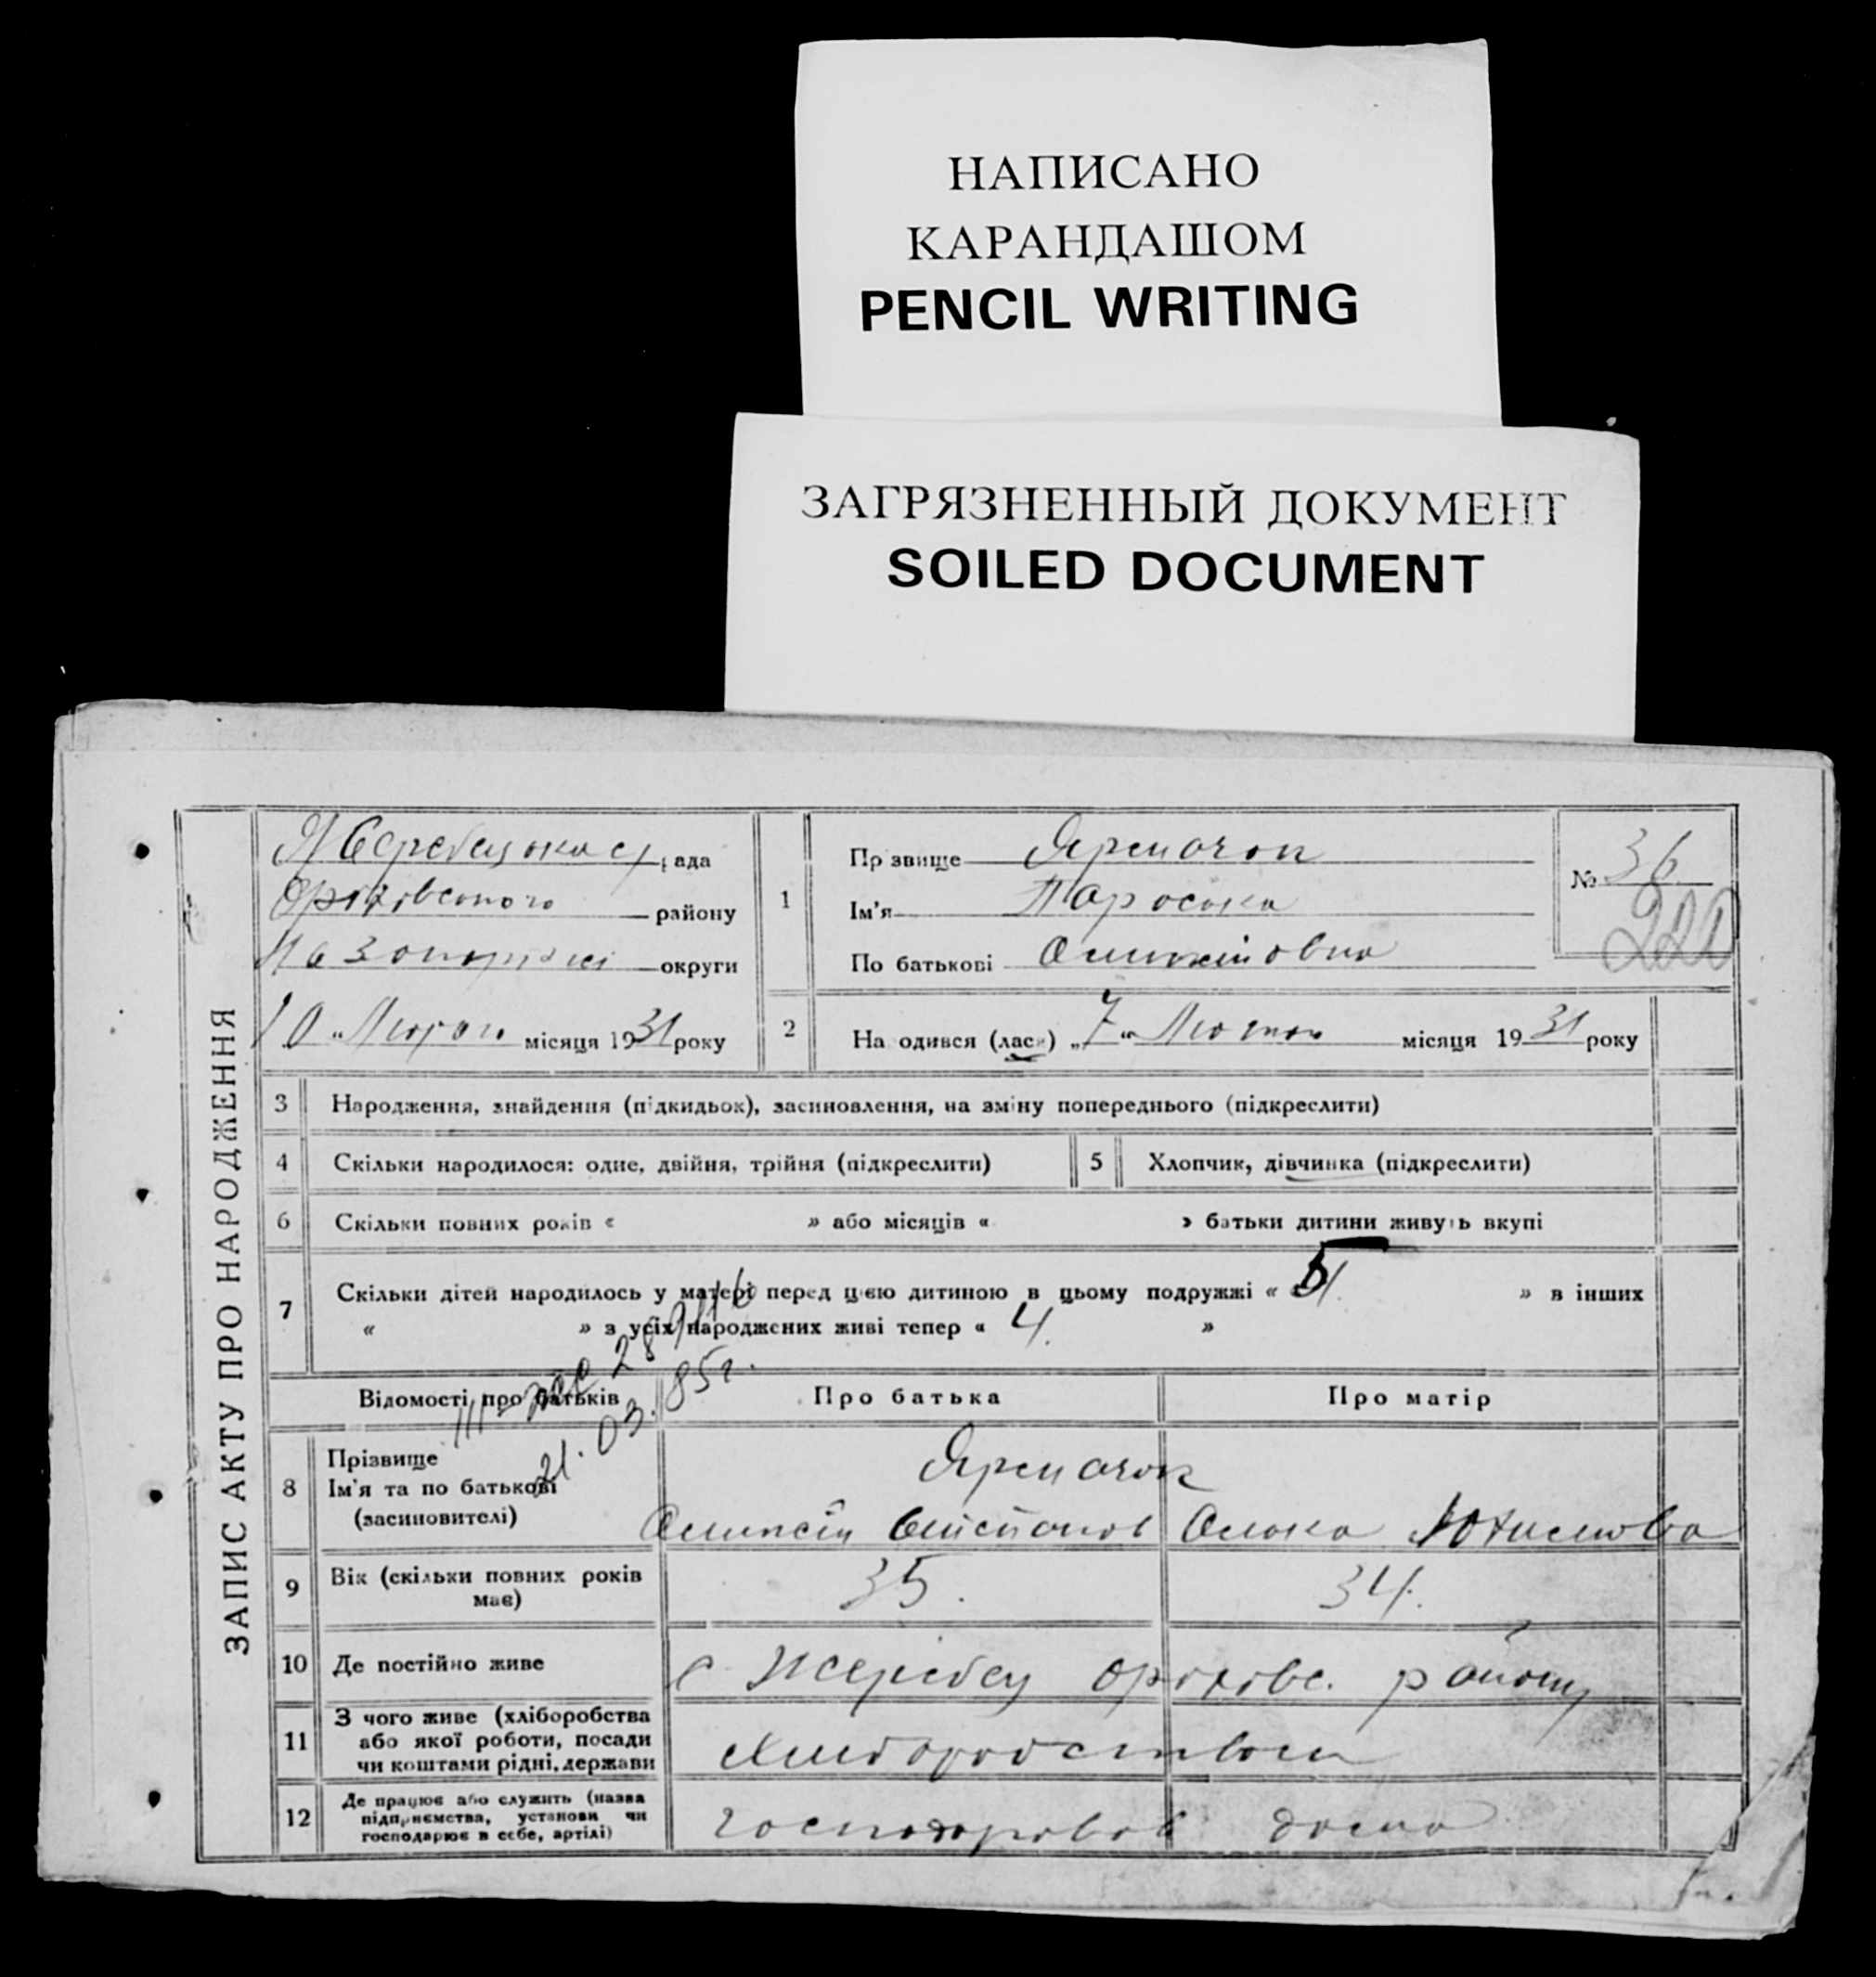 НАПИСАНО
КАРАНДАШОМ
PENCIL WRITING
ЗАГРЯЗНЕННЫЙ ДОКУМЕНТ
SOILED DOCUMENT
ЗАПИС АКТУ ПРО НАРОДЖЕННЯ
рада
району
округи
10 „Лютого місяця 1931 року
1
Прізвище Яремачок
Ім'я Пароска
По батькові
№ 36
222
2
Народився (лася) „7“ Лютого місяця 1931 року
3 Народження, знайдення (підкидьок), засиновлення, на зміну попереднього (підкреслити)
4 Скільки народилося: одне, двійня, трійня (підкреслити)
5 Хлопчик, дівчинка (підкреслити)
6 Скільки повних років « » або місяців « » батьки дитини живуть вкупі
7 Скільки дітей народилось у матері перед цією дитиною в цьому подружжі « » в інших
« » з усіх народжених живі тепер « 4. »
21.03.85г.
Відомості про батьків
Про батька
Про матір
8 Прізвище
Ім'я та по батькові
(засиновителі)
Яремачок
9 Вік (скільки повних років
має)
35.
34.
10 Де постійно живе
с Жеребец Оріхівс. району
11 З чого живе (хліборобства
або якої роботи, посади
чи коштами рідні, держави
Хліборобством
12 Де працює або служить (назва
підприємства, установи чи
господарює в себе, артілі)
дома